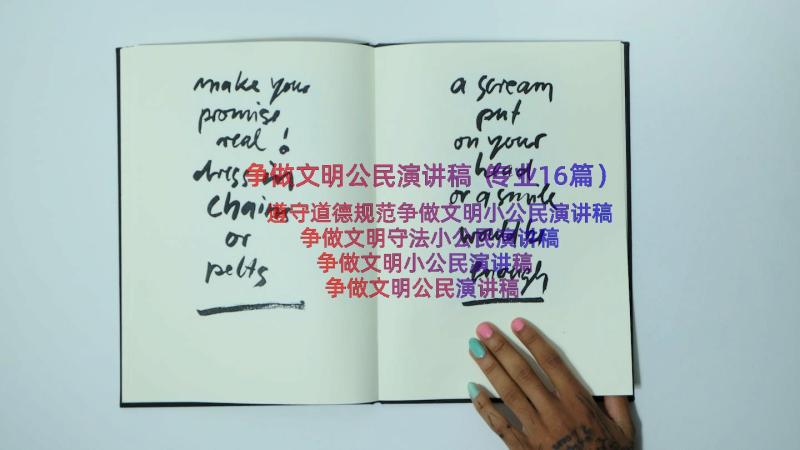 make your
promise
real!
dress in
chains
or
pelts
a scream
put
on your
head
or a smile
would be
enough
争做文明公民演讲稿(专业16篇)
遵守道德规范争做文明小公民演讲稿
争做文明守法小公民演讲稿
争做文明小公民演讲稿
争做文明公民演讲稿